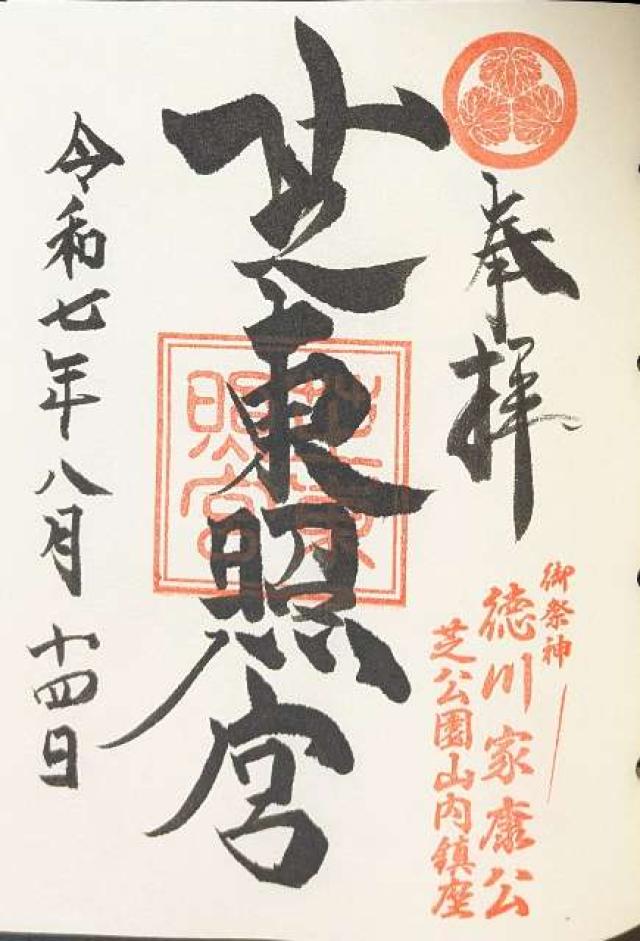 奉拝
御祭神
徳川家康公
芝公園山内鎮座
芝東照宮
芝東照宮
令和七年八月十四日